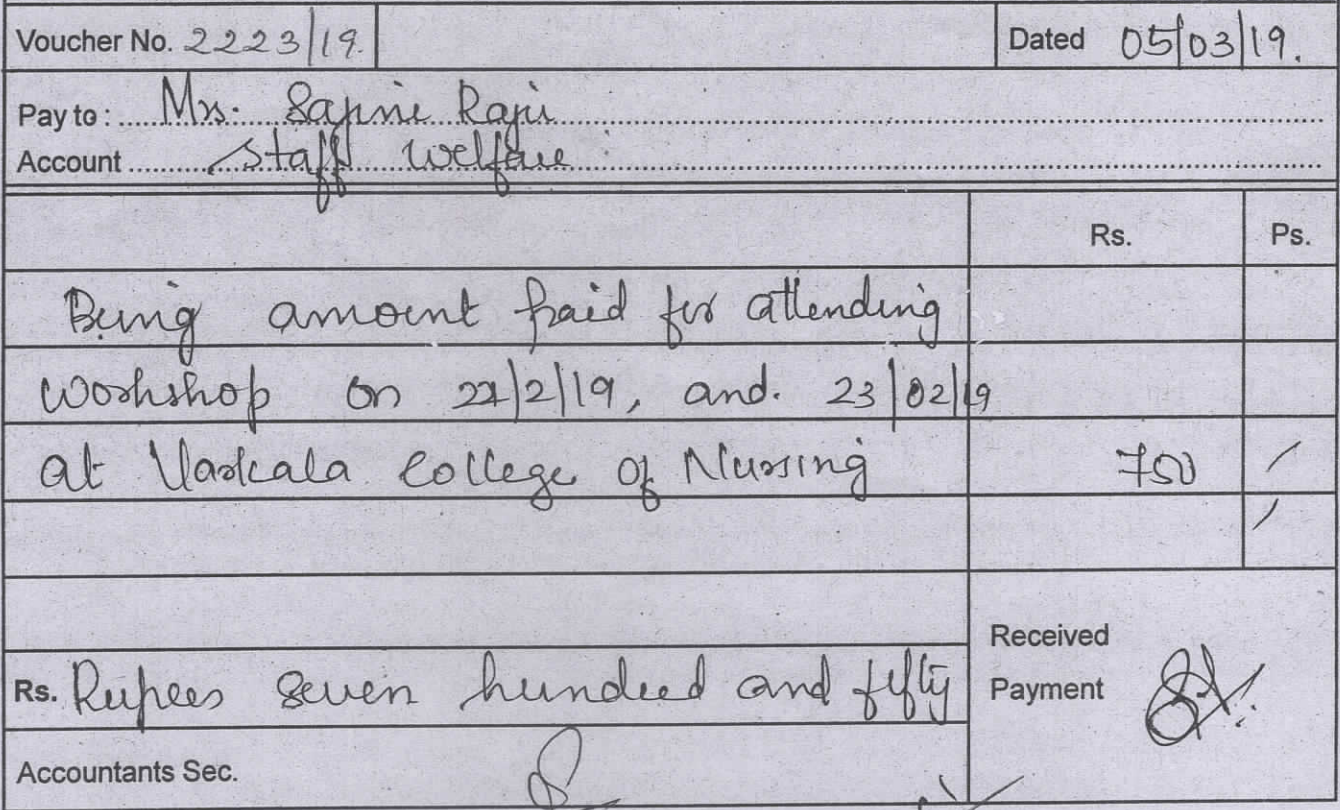 Voucher No. 2223/19. Dated 05/03/19.
Pay to : Mrs. Sajini Raju
Account Staff Welfare
Rs. Ps.
Being amount paid for attending
workshop on 22/2/19, and. 23/02/19
at Varkala College of Nursing 750
Received
Rs. Rupees seven hundred and fifty Payment
Accountants Sec.